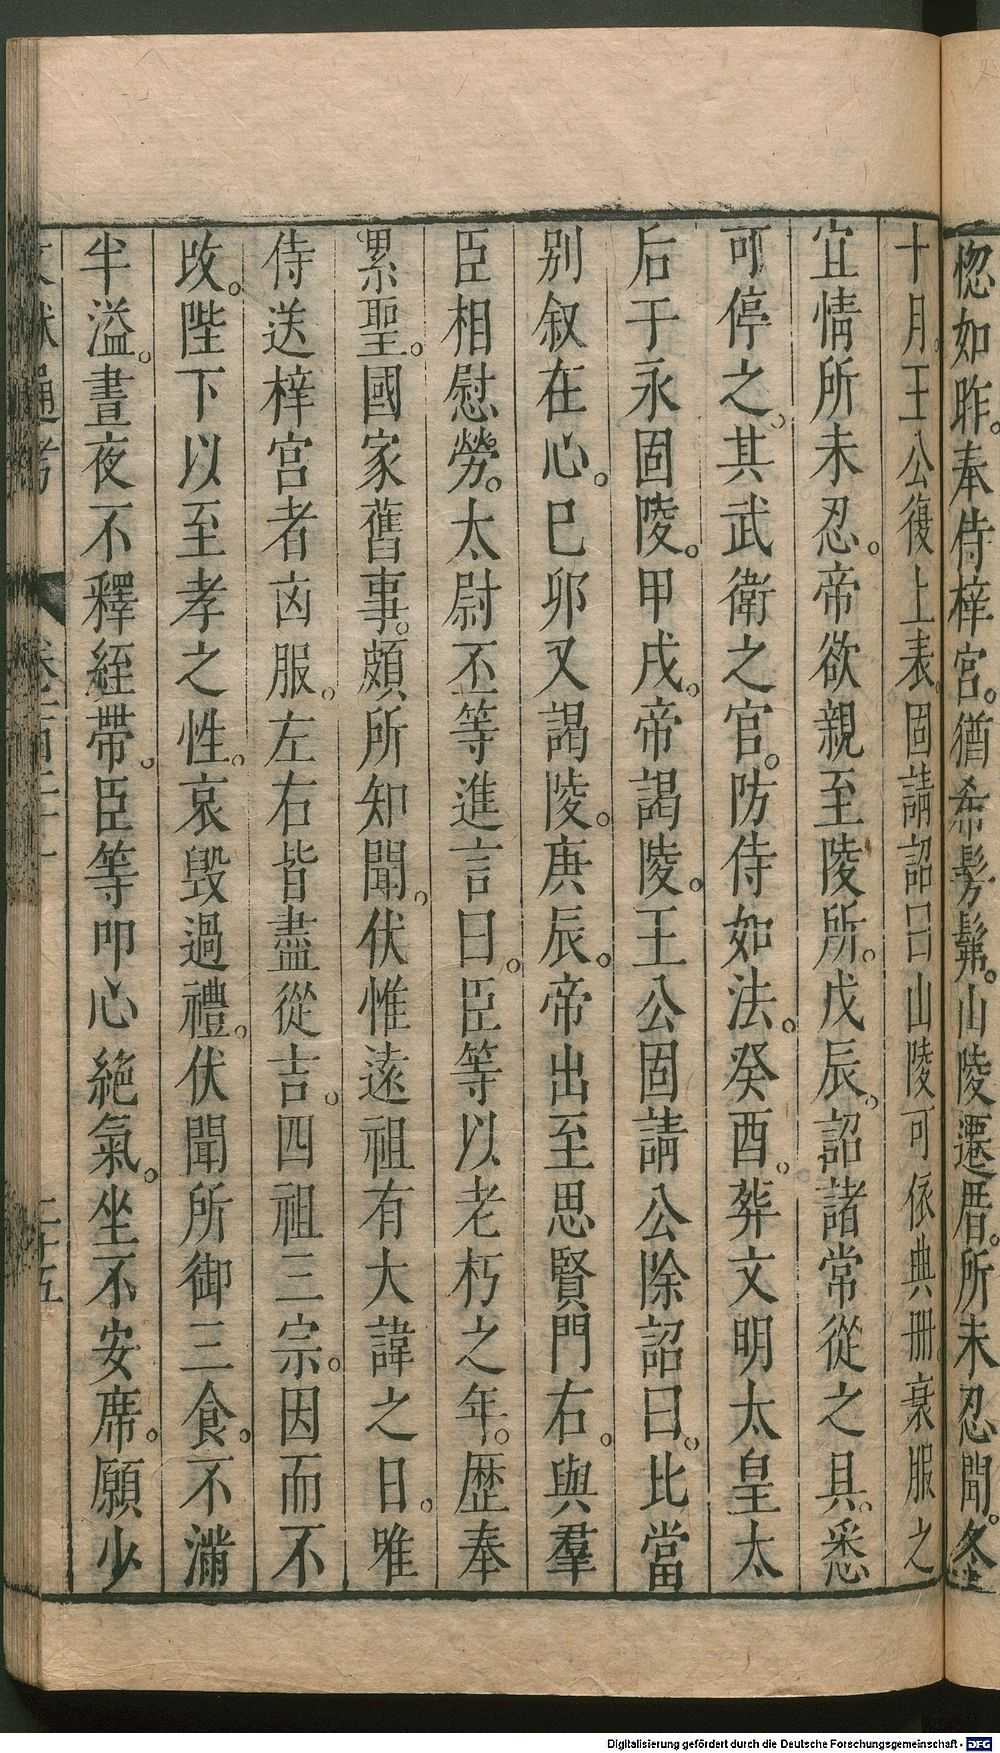 惚如昨。奉侍梓宮。猶希髣髴。山陵遷厝。所未忍聞。冬
十月。王公復上表。固請詔曰山陵可依典冊。衰服之
宜情所未忍。帝欲親至陵所。戊辰。詔諸常從之具。悉
可停之。其武衛之官。防侍如法。癸酉。葬文明太皇太
后于永固陵。甲戌。帝謁陵。王公固請公除詔曰。比當
別叙在心。巳卯又謁陵。庚辰。帝出至思賢門右。與羣
臣相慰勞。太尉丕等進言曰。臣等以老朽之年。歴奉
累聖。國家舊事。頗所知聞。伏惟遠祖有大諱之日。唯
侍送梓宮者凶服。左右皆盡從吉。四祖三宗。因而不
改。陛下以至孝之性。哀毁過禮。伏聞所御三食。不滿
半溢。晝夜不釋絰帶。臣等叩心絶氣。坐不安席。願少
文獻通考 二十五
Digitalisierung gefördert durch die Deutsche Forschungsgemeinschaft - DFG